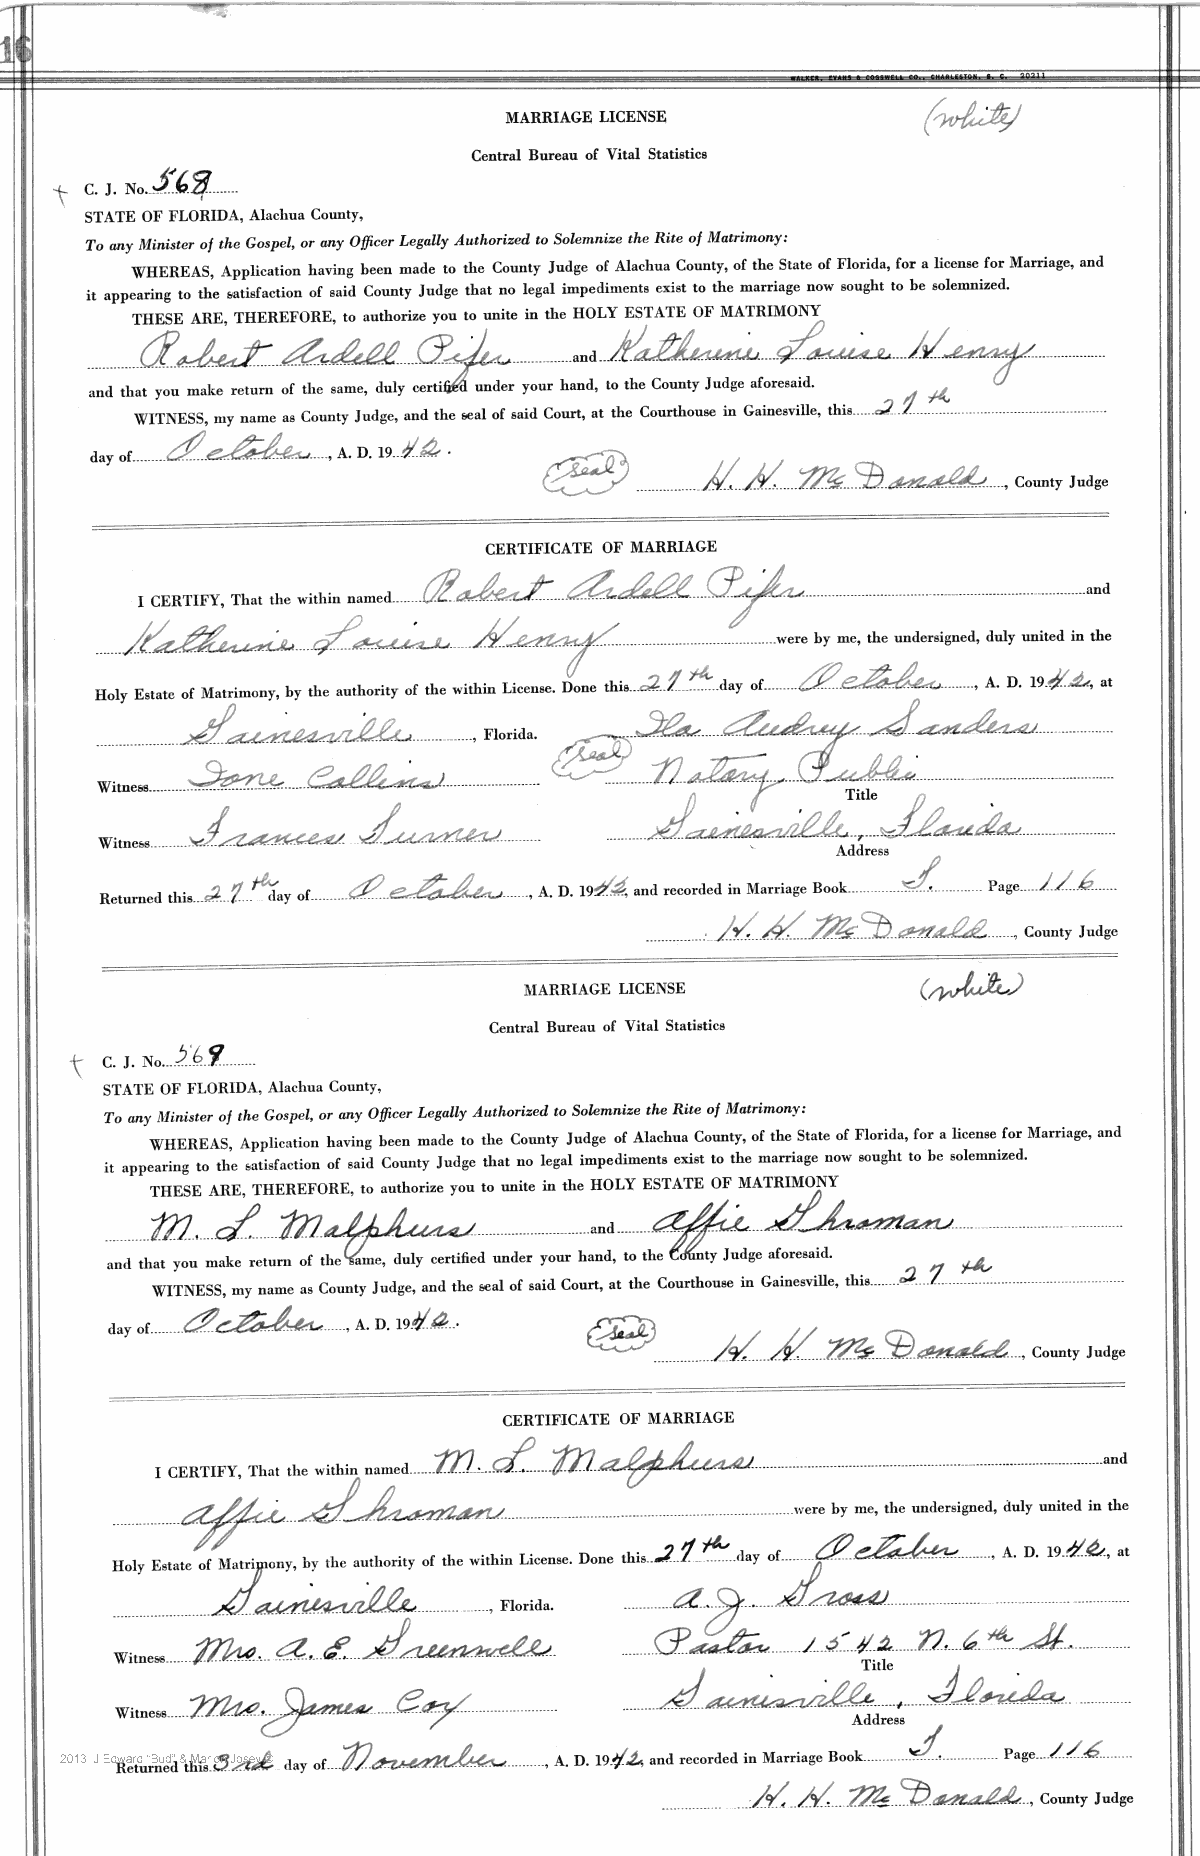 16
WALKER, EVANS & COGSWELL CO., CHARLESTON, S. C. 20211
MARRIAGE LICENSE
(white)
Central Bureau of Vital Statistics
C. J. No. 568
STATE OF FLORIDA, Alachua County,
To any Minister of the Gospel, or any Officer Legally Authorized to Solemnize the Rite of Matrimony:
WHEREAS, Application having been made to the County Judge of Alachua County, of the State of Florida, for a license for Marriage, and
it appearing to the satisfaction of said County Judge that no legal impediments exist to the marriage now sought to be solemnized.
THESE ARE, THEREFORE, to authorize you to unite in the HOLY ESTATE OF MATRIMONY
Robert Ardell Pifer and Katherine Louise Henry
and that you make return of the same, duly certified under your hand, to the County Judge aforesaid.
WITNESS, my name as County Judge, and the seal of said Court, at the Courthouse in Gainesville, this 27th
day of October, A. D. 1942.
(seal) H. H. McDonald, County Judge
CERTIFICATE OF MARRIAGE
I CERTIFY, That the within named Robert Ardell Pifer and
Katherine Louise Henry were by me, the undersigned, duly united in the
Holy Estate of Matrimony, by the authority of the within License. Done this 27th day of October, A. D. 1942, at
Gainesville, Florida. Ila Audrey Sanders
(seal)
Witness Ione Collins Notary Public
Title
Witness Frances Turner Gainesville, Florida
Address
Returned this 27th day of October, A. D. 1942, and recorded in Marriage Book T. Page 116
H. H. McDonald, County Judge
MARRIAGE LICENSE
(white)
Central Bureau of Vital Statistics
C. J. No. 569
STATE OF FLORIDA, Alachua County,
To any Minister of the Gospel, or any Officer Legally Authorized to Solemnize the Rite of Matrimony:
WHEREAS, Application having been made to the County Judge of Alachua County, of the State of Florida, for a license for Marriage, and
it appearing to the satisfaction of said County Judge that no legal impediments exist to the marriage now sought to be solemnized.
THESE ARE, THEREFORE, to authorize you to unite in the HOLY ESTATE OF MATRIMONY
M. L. Malphurs and Affie Shroman
and that you make return of the same, duly certified under your hand, to the County Judge aforesaid.
WITNESS, my name as County Judge, and the seal of said Court, at the Courthouse in Gainesville, this 27th
day of October, A. D. 1942.
(seal) H. H. McDonald, County Judge
CERTIFICATE OF MARRIAGE
I CERTIFY, That the within named M. L. Malphurs and
Affie Shroman were by me, the undersigned, duly united in the
Holy Estate of Matrimony, by the authority of the within License. Done this 27th day of October, A. D. 1942, at
Gainesville, Florida. A. J. Gross
Witness Mrs. A. E. Greenwell Pastor 1542 N. 6th St.
Title
Witness Mrs. James Cox Gainesville, Florida
Address
2013 J Edward "Bud" & Marion Josey ©
Returned this 3rd day of November, A. D. 1942, and recorded in Marriage Book T. Page 116
H. H. McDonald, County Judge